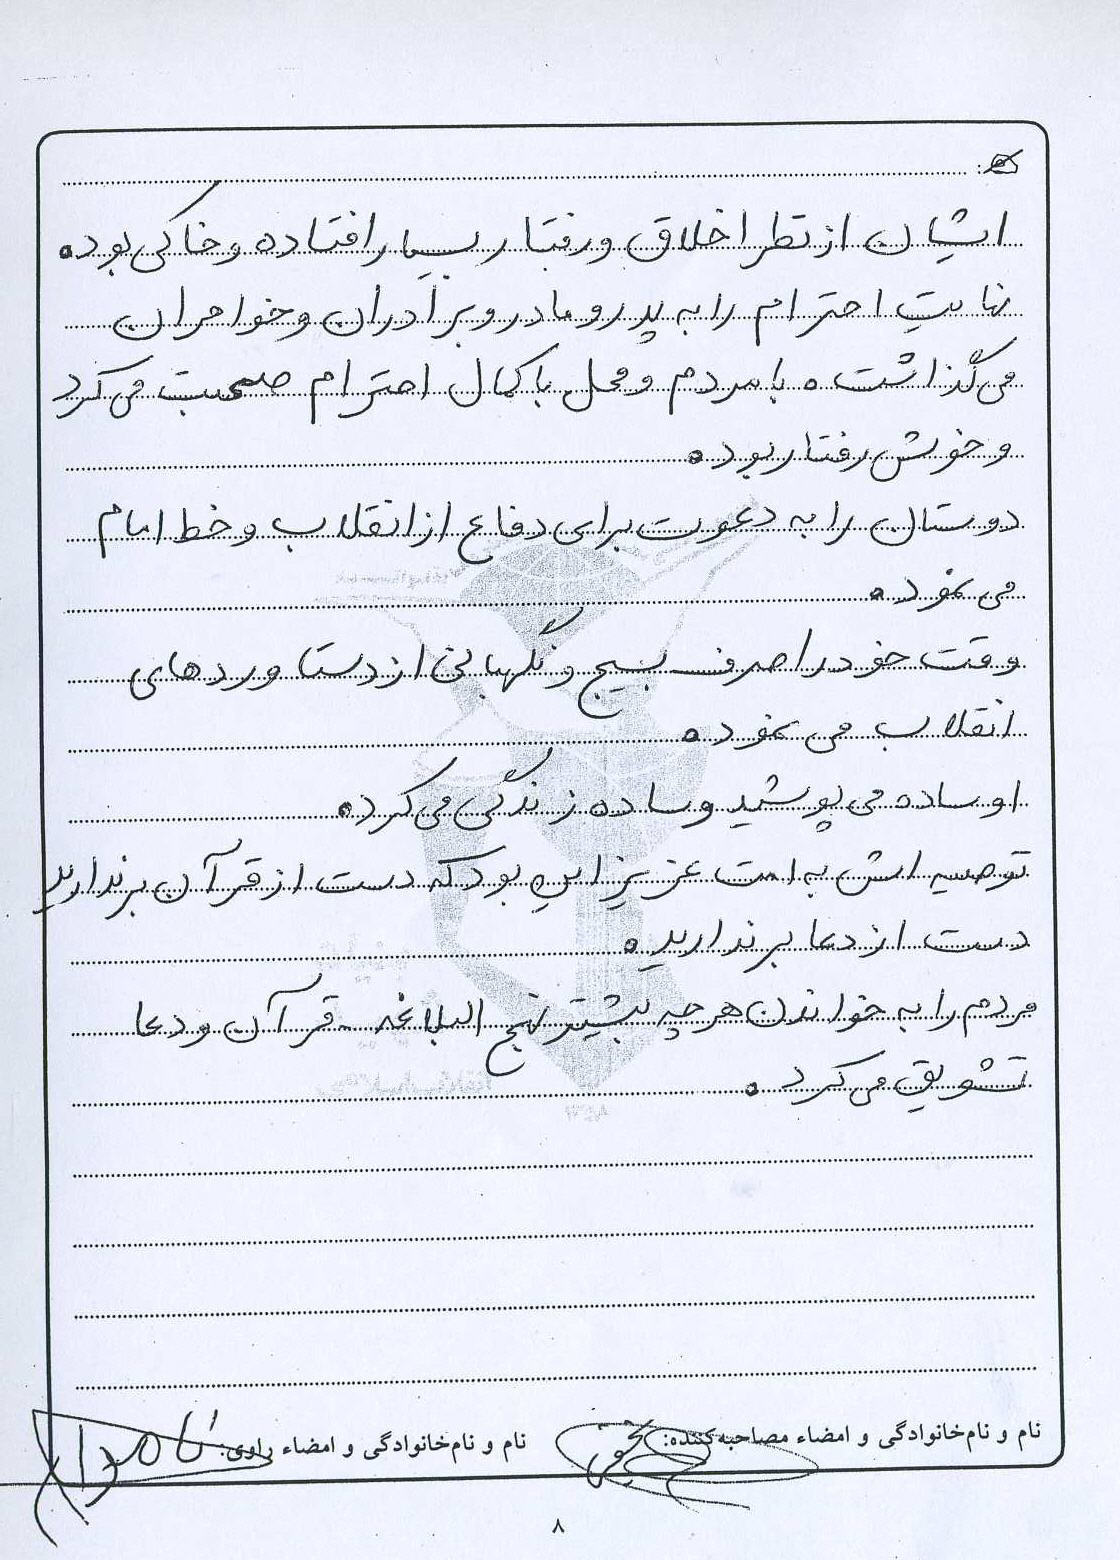 ایشان از نظر اخلاق و رفتار بسیار افتاده و خاکی بود.
نهایت احترام را به پدر و مادر و برادران و خواهران
می‌گذاشت. با مردم و محل با کمال احترام صحبت می‌کرد
و خوش رفتار بود.
دوستان را به دعوت برای دفاع از انقلاب و خط امام
می نمود.
وقت خود را صرف بسیج و نگهبانی از دستاوردهای
انقلاب می نمود.
او ساده می پوشید و ساده زندگی می کرد.
توصیه اش به امت عزیز این بود که دست از قرآن برندارید
دست از دعا برندارید.
مردم را به خواندن هر چه بیشتر نهج البلاغه - قرآن و دعا
تشویق می کرد.
نام و نام‌خانوادگی و امضاء مصاحبه‌کننده: نام و نام‌خانوادگی و امضاء راوی:
۸